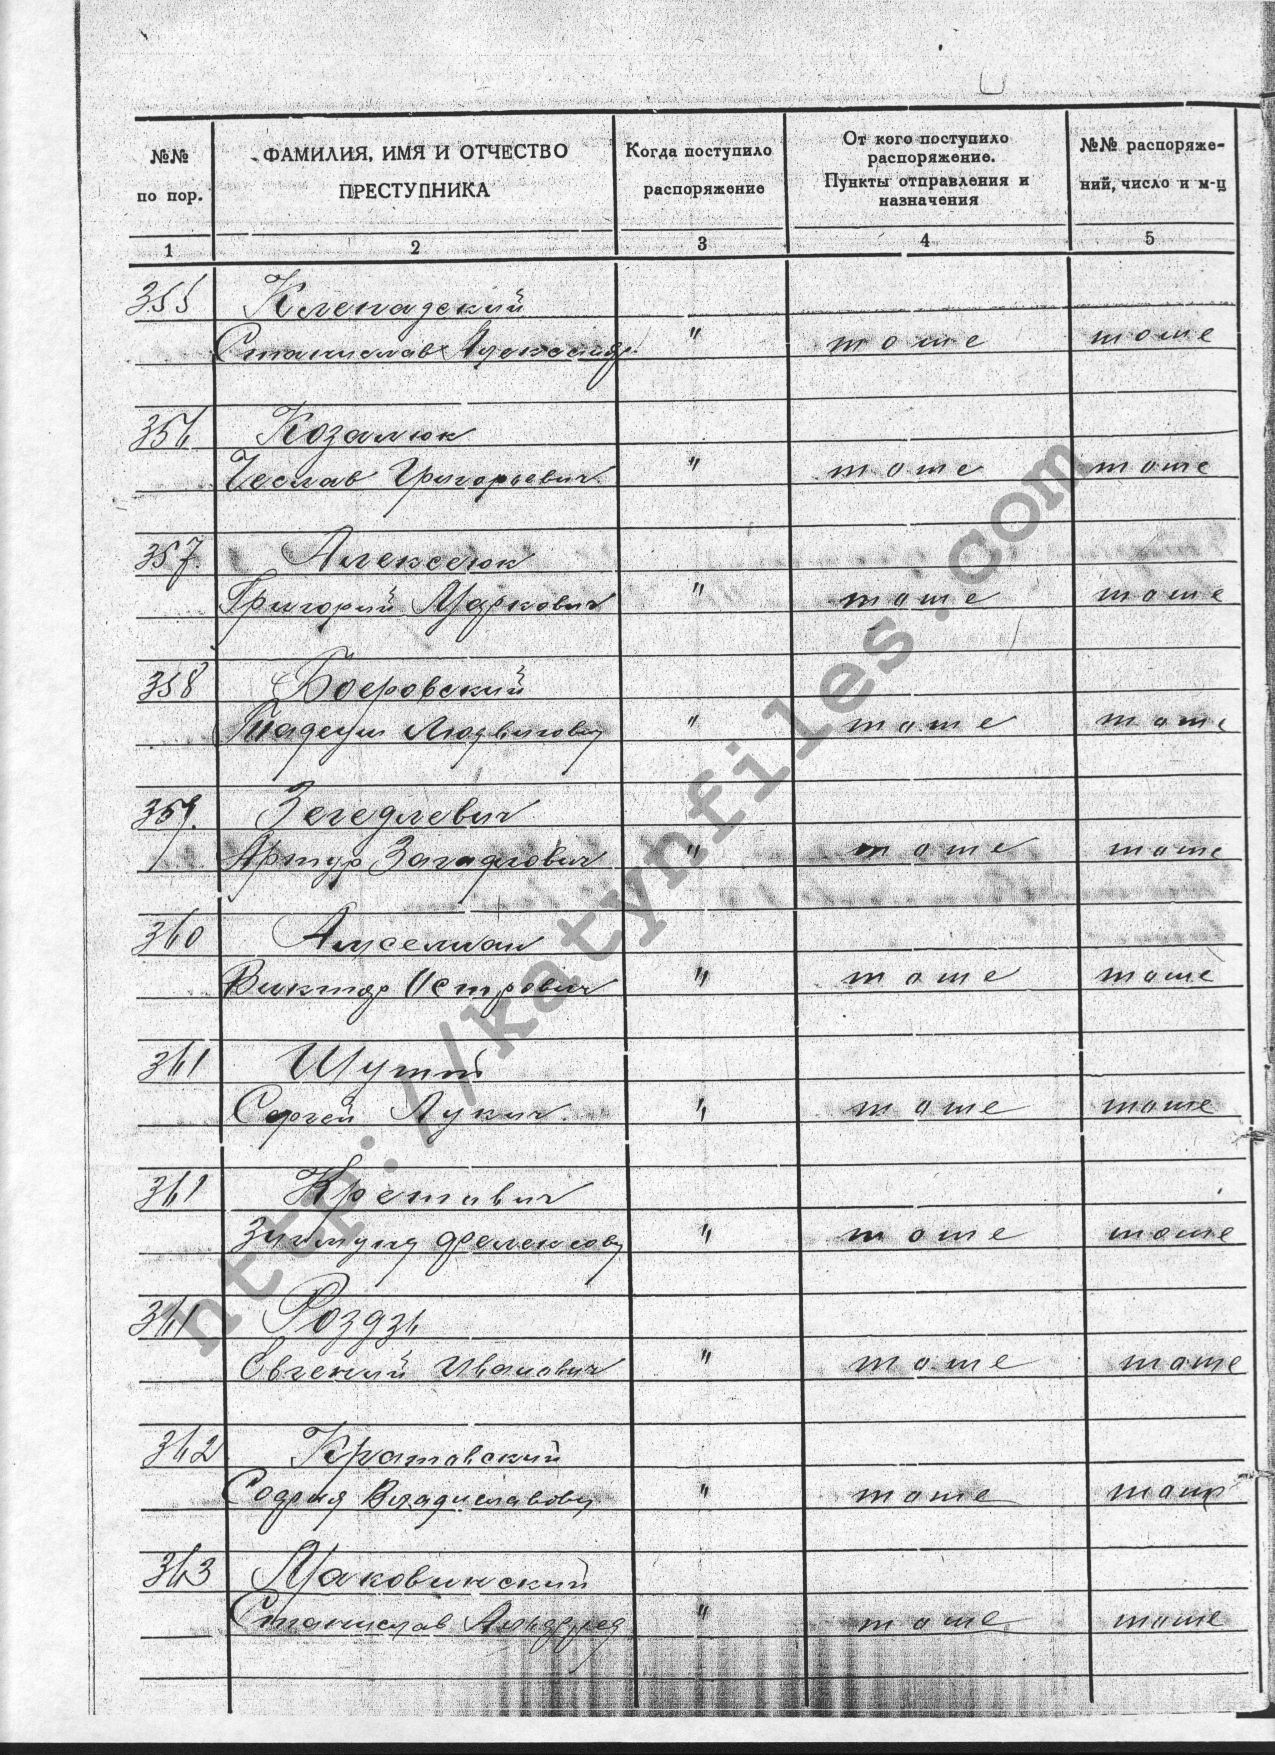 №№ по пор.
ФАМИЛИЯ, ИМЯ И ОТЧЕСТВО ПРЕСТУПНИКА
Когда поступило распоряжение
От кого поступило распоряжение. Пункты отправления и назначения
№№ распоряжений, число и м-ц
1 2 3 4 5
355 Кленадский
Станислав Александр. " тоше тоше
356 Козалюк
Чеслав Григорьевич " тоше тоше
357. Алексеюк
Григорий Маркович " тоше тоше
358 Боеровский
Тадеуш Людвигович " тоше тоше
359. Зегедлевич
Артур " тоше тоше
360
Виктор Петрович " тоше тоше
361 Шутый
Сергей Лукич. " тоше тоше
361 Кретович
Зигмунд " тоше тоше
361 Роздзь
Евгений Иванович " тоше тоше
362 Кратовский
Владиславович " тоше тоше
363 Маковинский
Станислав " тоше тоше
http://katynfiles.com